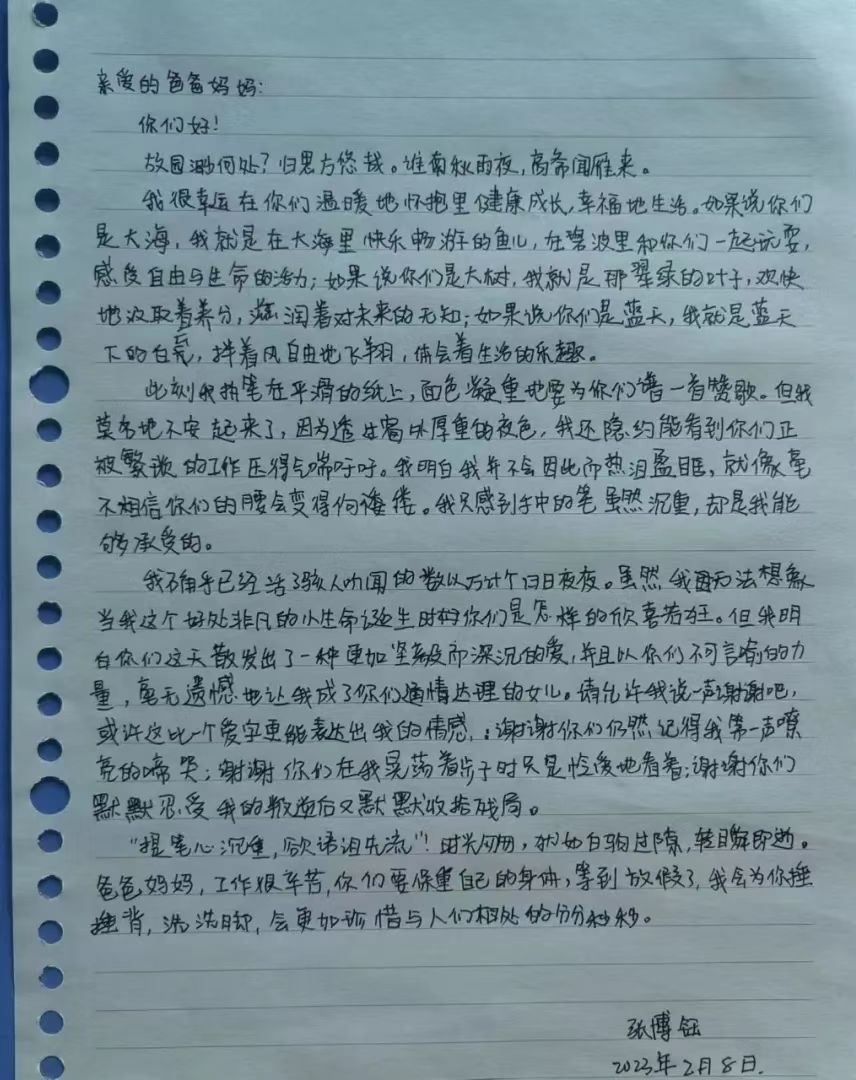 亲爱的爸爸妈妈:
你们好!
故园渺何处?归思方悠哉。淮南秋雨夜,高斋闻雁来。
我很幸运在你们温暖地怀抱里健康成长,幸福地生活。如果说你们
是大海,我就是在大海里快乐畅游的鱼儿,在碧波里和你们一起玩耍,
感受自由与生命的活力;如果说你们是大树,我就是那翠绿的叶子,欢快
地汲取着养分,滋润着对未来的无知;如果说你们是蓝天,我就是蓝天
下的白云,拌着风自由地飞翔,体会着生活的乐趣。
此刻我执笔在平滑的纸上,面色凝重地要为你们谱一首赞歌。但我
莫名地不安起来了,因为透过窗外厚重的夜色,我还隐约能看到你们正
被繁琐的工作压得气喘吁吁。我明白我并不会因此而热泪盈眶,就像毫
不相信你们的腰会变得佝偻。我只感到手中的笔虽然沉重,却是我能
够承受的。
我确乎已经活了骇人听闻的数以万计个白日夜夜。虽然我无法想象
当我这个好处非凡的小生命诞生时你们是怎样的欣喜若狂。但我明
白你们这天散发出了一种更加坚毅而深沉的爱,并且以你们不可言喻的力
量,毫无遗憾地让我成了你们通情达理的女儿。请允许我说一声谢谢吧,
或许这比一个爱字更能表达出我的情感,:谢谢你们仍然记得我第一声嘹
亮的啼哭;谢谢你们在我晃荡着步子时只是怜爱地看着;谢谢你们
默默忍受我的叛逆后又默默收拾残局。
“提笔心沉重,欲语泪先流”!时光匆匆,犹如白驹过隙,转瞬即逝。
爸爸妈妈,工作很辛苦,你们要保重自己的身体,等到放假了,我会为你捶
捶背,洗洗脚,会更加珍惜与人们相处的分分秒秒。
张博钰
2023年2月8日.